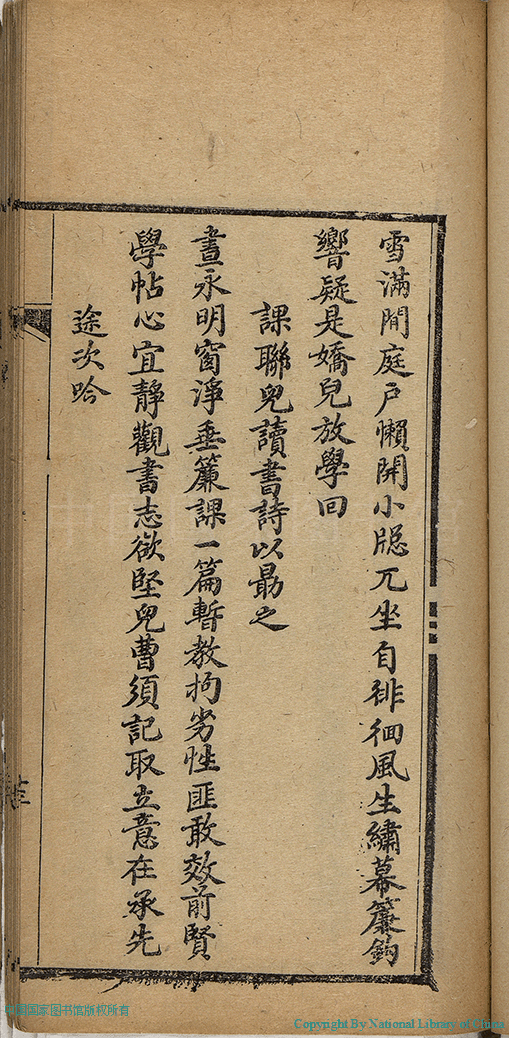 雪滿閒庭戶懶開小牕兀坐自徘徊風生繡幕簾鉤
響疑是嬌兒放學回
課聯兒讀書詩以勗之
晝永明窗淨垂簾課一篇暫教拘劣性匪敢效前賢
學帖心宜靜觀書志欲堅兒曹須記取立意在承先
途次吟
中國國家图书馆版权所有
Copyright By National Library of China